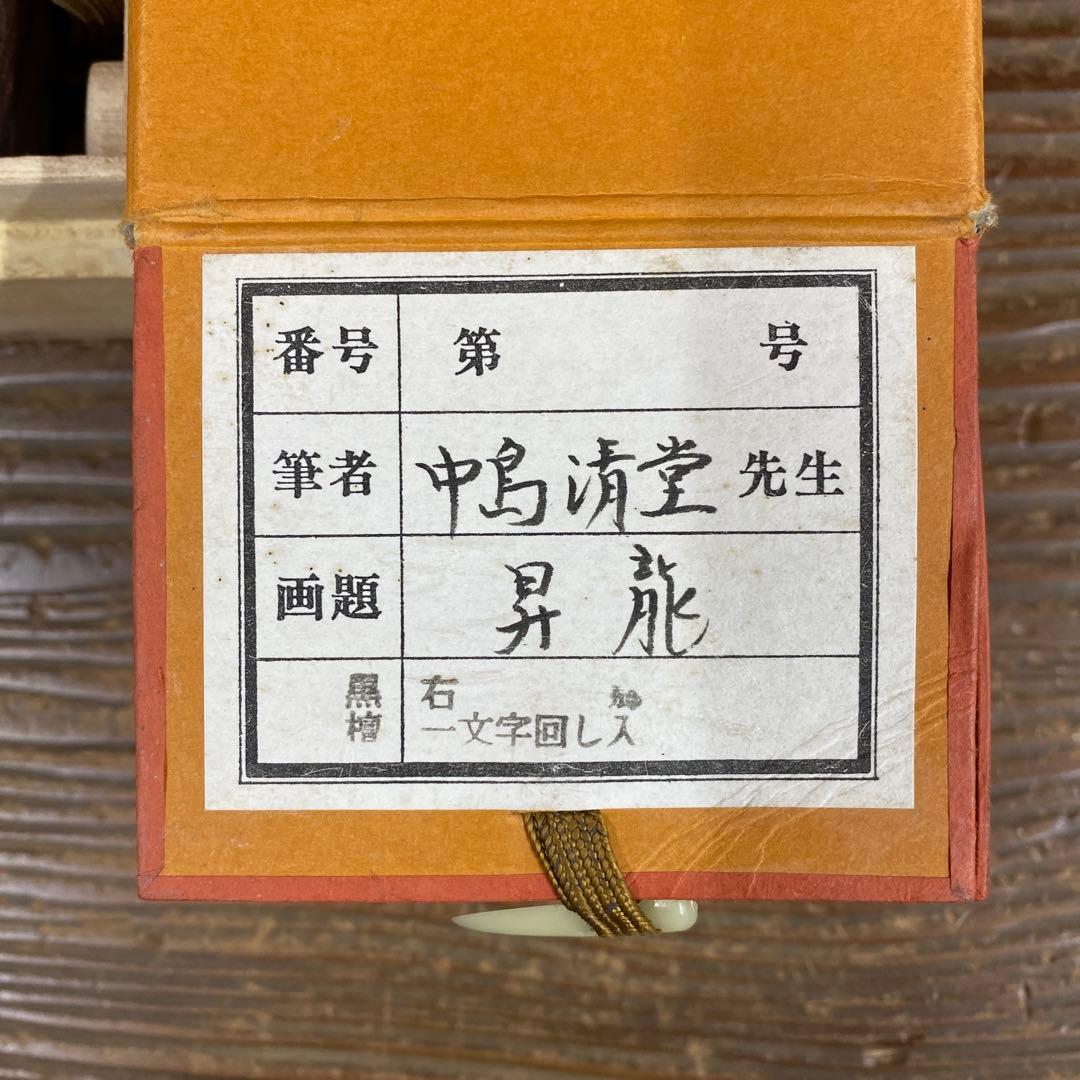 番号 第 号
筆者 中島清堂 先生
画題 昇龍
黒檀 右
一文字回し入